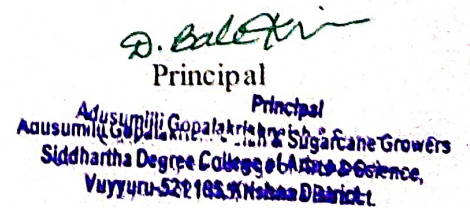 D. Bal
Principal
Principal
Adusumilli Gopalakrishnaiah & Sugarcane Growers
Siddhartha Degree College of Arts & Science,
Vuyyuru-521165, Krishna District.